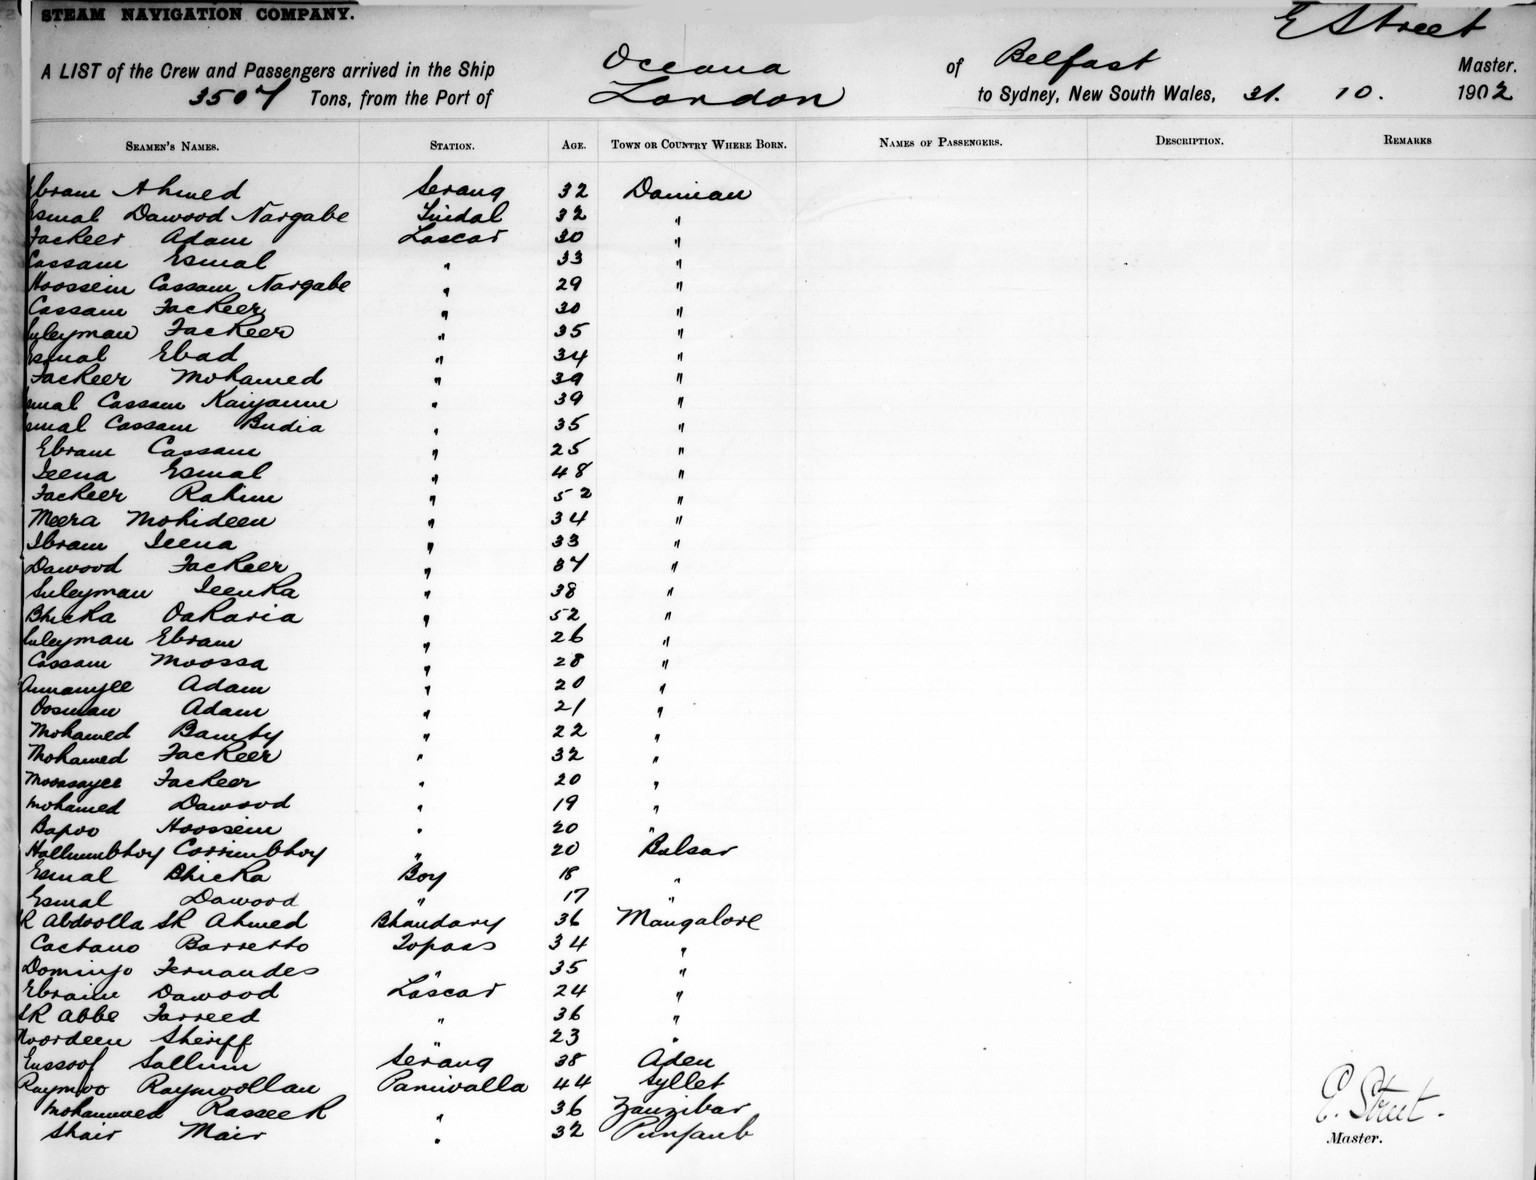 STEAM NAVIGATION COMPANY.
E Street
A LIST of the Crew and Passengers arrived in the Ship Oceana of Belfast Master.
3507 Tons, from the Port of London to Sydney, New South Wales, 31. 10. 1902
SEAMEN'S NAMES. STATION. AGE. TOWN OR COUNTRY WHERE BORN. NAMES OF PASSENGERS. DESCRIPTION. REMARKS
Ebram Ahmed Serang 32 Damian
Esmal Dawood Nargabe Tindal 32 "
Fackeer Adam Lascar 30 "
Cassam Esmal " 33 "
Hoossein Cassam Nargabe " 29 "
Cassam Fackeer " 30 "
Suleyman Fackeer " 35 "
Esmal Ebad " 34 "
Fackeer Mohamed " 39 "
Esmal Cassam " 39 "
Esmal Cassam Budia " 35 "
Ebram Cassam " 25 "
Ieena Esmal " 48 "
Fackeer Rahim " 52 "
Meera Mohideen " 34 "
Ibram Ieena " 33 "
Dawood Fackeer " 37 "
Suleyman " 38 "
Bhicka Dakaria " 52 "
Suleyman Ebram " 26 "
Cassam Moossa " 28 "
Adam " 20 "
Oosman Adam " 21 "
Mohamed Bamty " 22 "
Mohamed Fackeer " 32 "
Moosayee Fackeer " 20 "
Mohamed Dawood " 19 "
Bapoo Hoossein " 20 "
Corrimbhoy " 20 Bulsar
Esmal Bhicka Boy 18 "
Esmal Dawood " 17 "
SK Abdoolla SK Ahmed Bhandary 36 Mangalore
Caetano Barretto Topass 34 "
Domingo Fernandes " 35 "
Ebraim Dawood Lascar 24 "
SK Abbe Farreed " 36 "
Noordeen Sheriff " 23 "
Eussoof Sallum Serang 38 Aden
Raymoo Raymoollan Paniwalla 44 Syllet
Mohammed Rasseek " 36 Zanzibar
Shair Mair " 32 Punjaub
E. Street.
Master.